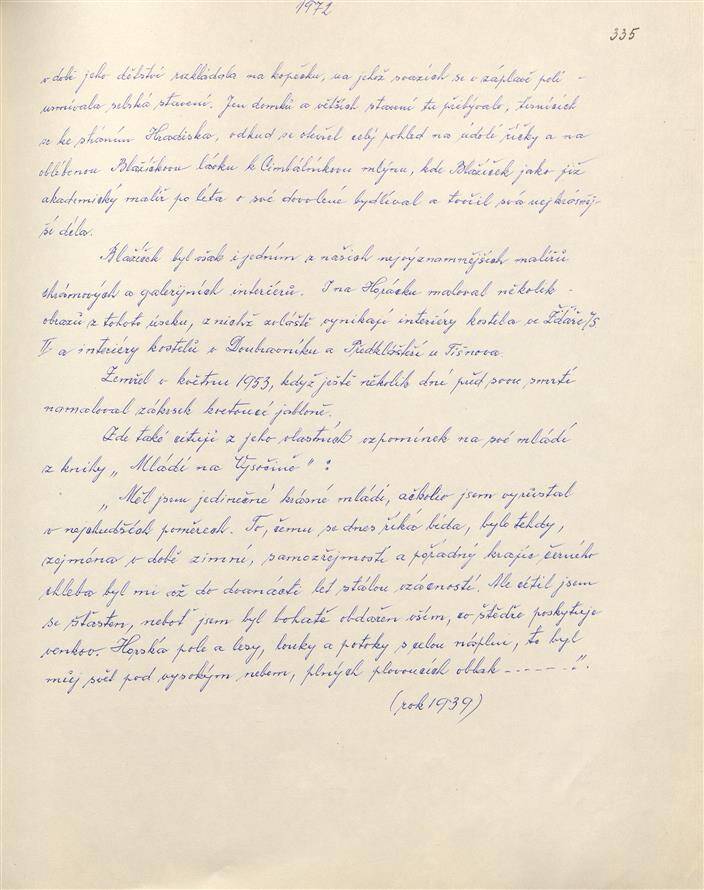 1972
335
v době jeho dětství rozkládala na kopečku, na jehož svazích se v záplavě polí -
usmívala selská stavení. Jen domků a větších stavení tu přibývalo, tísnících
se ke stráním Hradiska, odkud se otevřel celý pohled na údolí říčky a na
oblíbenou Blažíčkovu lávku k Cimbálníkovu mlýnu, kde Blažíček jako již
akademický malíř po léta o své dovolené bydlíval a tvořil svá nejkrásněj-
ší díla.
Blažíček byl však i jedním z našich nejvýznamnějších malířů
chrámových a galerijních interiérů. I na Horácku maloval několik -
obrazů z tohoto úseku, z nichž zvláště vynikají interiéry kostela ve Žďáře n/S
II a interiéry kostelů v Doubravníku a Předklášteří u Tišnova.
Zemřel v květnu 1953, když ještě několik dní před svou smrtí
namaloval zákrsek kvetoucí jabloně.
Zde také cituji z jeho vlastních vzpomínek na své mládí
z knihy „Mládí na Vysočině" :
„Měl jsem jedinečné krásné mládí, ačkoliv jsem vyrůstal
v nejchudších poměrech. To, čemu se dnes říká bída, bylo tehdy,
zejména v době zimní, samozřejmostí a pořádný krajíc černého
chleba byl mi až do dvanácti let stálou vzácností. Ale cítil jsem
se šťasten, neboť jsem byl bohatě obdařen vším, co štědře poskytuje
venkov. Horská pole a lesy, louky a potoky s celou náplní, to byl
můj svět pod vysokým nebem, plných plovoucích oblak - - - - - ."
(rok 1939)